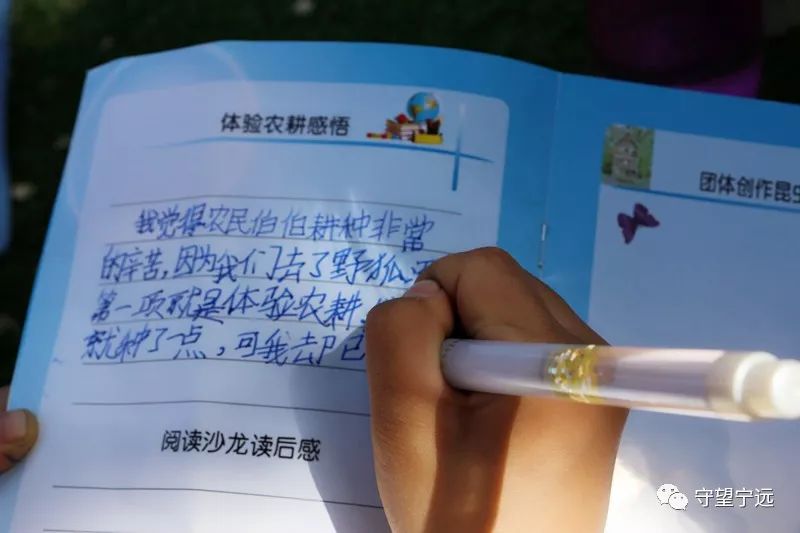 体验农耕感悟
我觉得农民伯伯耕种非常
的辛苦,因为我们去了野狐
第一项就是体验农耕
就种了一点,可我却已
阅读沙龙读后感
团体创作昆
守望宁远